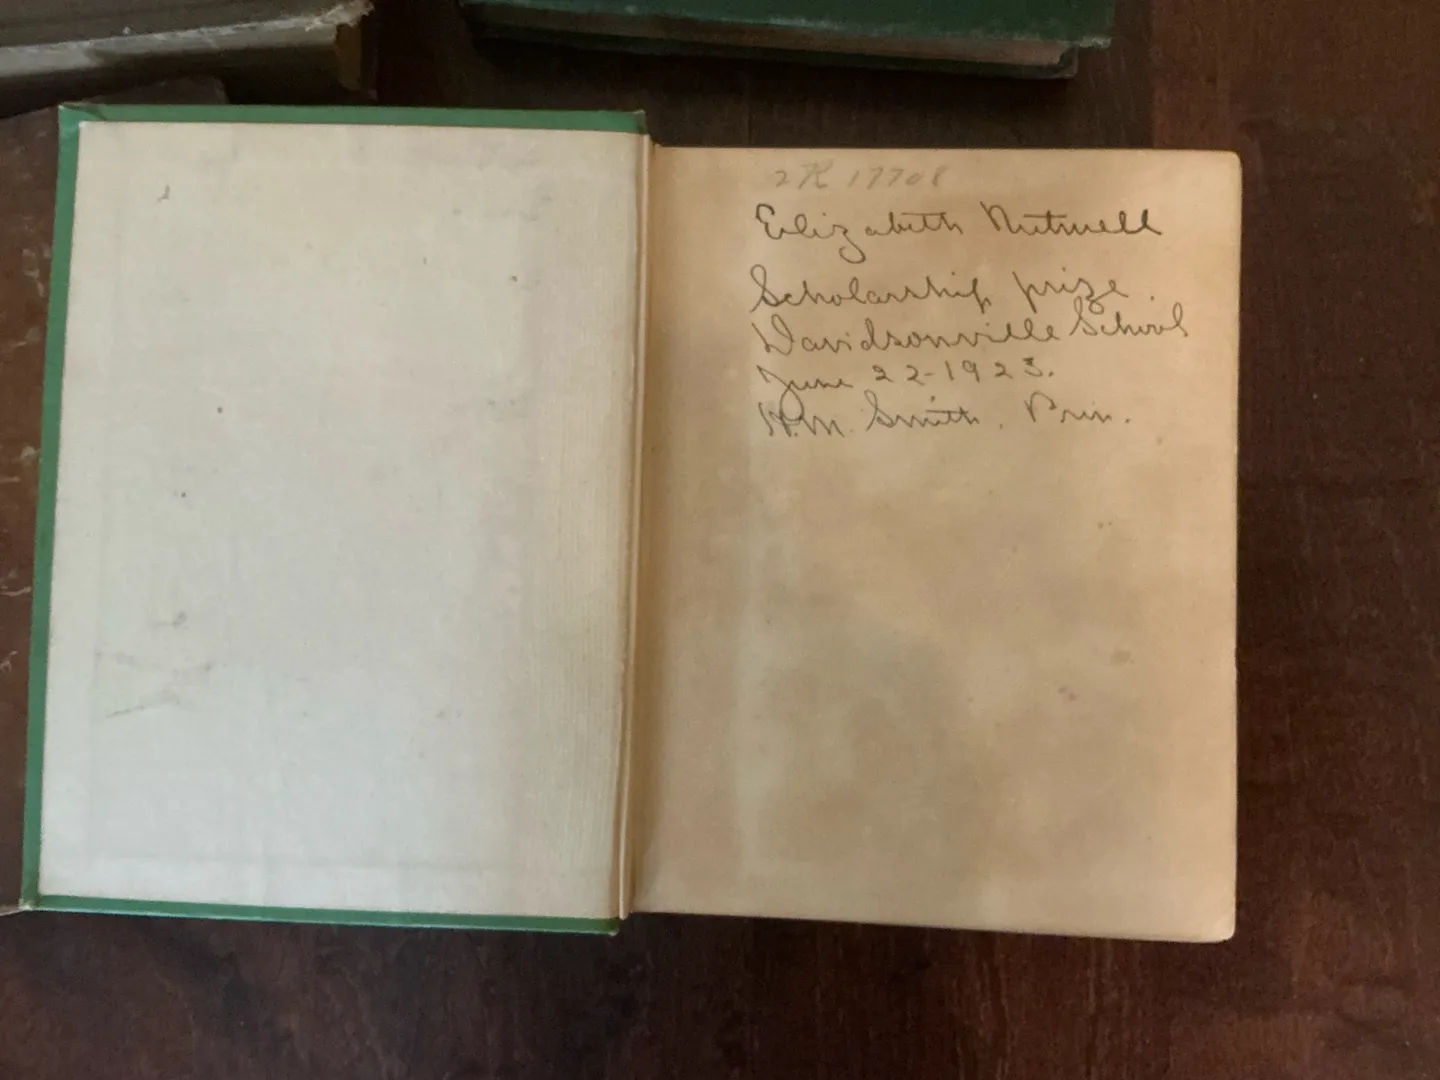 2R 17708
Elizabeth Nutwell
Scholarship prize
Davidsonville School
June 22-1923.
H.M. Smith, Prin.